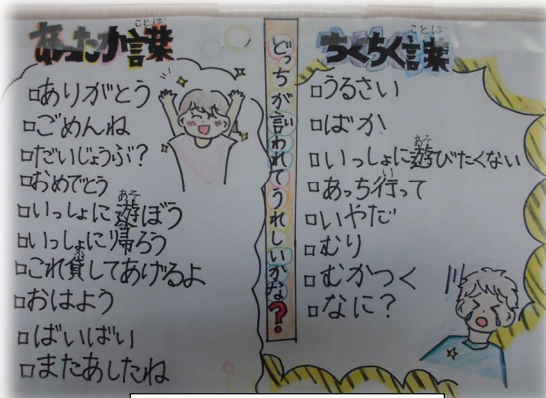 あったか言葉
□ありがとう
□ごめんね
□だいじょうぶ?
□おめでとう
□いっしょに遊ぼう
□いっしょに帰ろう
□これ貸してあげるよ
□おはよう
□ばいばい
□またあしたね
どっちが言われてうれしいかな?
ちくちく言葉
□うるさい
□ばか
□いっしょに遊びたくない
□あっち行って
□いやだ
□むり
□むかつく
□なに?